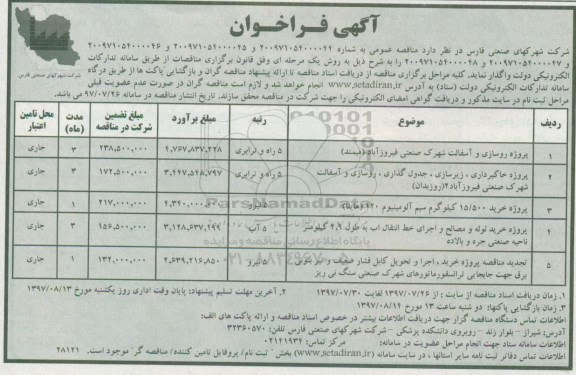 آگهی فراخوان
شرکت شهرکهای صنعتی فارس
شرکت شهرکهای صنعتی فارس در نظر دارد مناقصه عمومی به شماره ۲۰۰۹۷۱۰۵۴۰۰۰۰۴۴ و ۲۰۰۹۷۱۰۵۴۰۰۰۰۴۵ و ۲۰۰۹۷۱۰۵۴۰۰۰۰۴۶
و ۲۰۰۹۷۱۰۵۴۰۰۰۰۴۷ و ۲۰۰۹۷۱۰۵۴۰۰۰۰۴۸ را به شرح ذیل به روش یک مرحله ای وفق قانون برگزاری مناقصات از طریق سامانه تدارکات
الکترونیکی دولت واگذار نماید. کلیه مراحل برگزاری مناقصه از دریافت اسناد مناقصه تا ارائه پیشنهاد مناقصه گران و بازگشایی پاکت ها از طریق درگاه
سامانه تدارکات الکترونیکی دولت (ستاد) به آدرس www.setadiran.ir انجام خواهد شد و لازم است مناقصه گران در صورت عدم عضویت قبلی
مراحل ثبت نام در سایت مذکور و دریافت گواهی امضای الکترونیکی را جهت شرکت در مناقصه محقق سازند. تاریخ انتشار مناقصه در سامانه ۹۷/۰۷/۲۶ می باشد.
ردیف موضوع رتبه مبلغ برآورد مبلغ تضمین شرکت در مناقصه مدت (ماه) محل تامین اعتبار
۱ پروژه روسازی و آسفالت شهرک صنعتی فیروزآباد (میمند) ۵ راه و ترابری ۴,۷۶۷,۸۳۷,۲۲۸ ۲۳۸,۵۰۰,۰۰۰ ۳ جاری
۲ پروژه خاکبرداری ، زیرسازی ، جدول گذاری ، روسازی و آسفالت شهرک صنعتی فیروزآباد۲(روزبدان) ۵ راه و ترابری ۳,۴۴۷,۵۴۸,۷۹۷ ۱۷۲,۵۰۰,۰۰۰ ۳ جاری
۳ پروژه خرید ۱۵/۵۰۰ کیلوگرم سیم آلومینیوم ۱۲۰ (هاینا) ۵ نیرو ۴,۳۴۰,۰۰۰,۰۰۰ ۲۱۷,۰۰۰,۰۰۰ ۱ جاری
۴ پروژه خرید لوله و مصالح و اجرای خط انتقال آب به طول ۴,۹ کیلومتر ناحیه صنعتی جره و بالاده ۵ آب ۳,۱۲۸,۶۳۷,۲۹۹ ۱۵۶,۵۰۰,۰۰۰ ۳ جاری
۵ تجدید مناقصه پروژه خرید ، اجرا و تحویل کابل فشار ضعیف و تیر بتونی برق جهت جابجایی ترانسفورماتورهای شهرک صنعتی سنگ نی ریز ۵ نیرو ۲,۶۳۹,۲۱۶,۸۵۰ ۱۳۲,۰۰۰,۰۰۰ ۱ جاری
۱. زمان دریافت اسناد مناقصه از سایت : از ۱۳۹۷/۰۷/۲۶ لغایت ۱۳۹۷/۰۷/۳۰ ۲. آخرین مهلت تسلیم پیشنهاد: پایان وقت اداری روز یکشنبه مورخ ۱۳۹۷/۰۸/۱۳
۳. زمان بازگشایی پاکتها: دو شنبه ساعت ۱۳ مورخ ۱۳۹۷/۰۸/۱۴
اطلاعات تماس دستگاه مناقصه گزار جهت دریافت اطلاعات بیشتر در خصوص اسناد مناقصه و ارائه پاکت های الف:
آدرس: شیراز – بلوار زند – روبروی دانشکده پزشکی – شرکت شهرکهای صنعتی فارس تلفن: ۳۲۳۶۰۵۷۰
اطلاعات سامانه ستاد جهت انجام مراحل عضویت در سامانه: مرکز تماس: ۰۲۱۴۱۹۳۴
اطلاعات تماس دفاتر ثبت نامه سایر استانها ، در سایت سامانه (www.setadiran.ir) بخش " ثبت نام / پروفایل تامین کننده/ مناقصه گر" موجود است. ۲۸۱۲۱